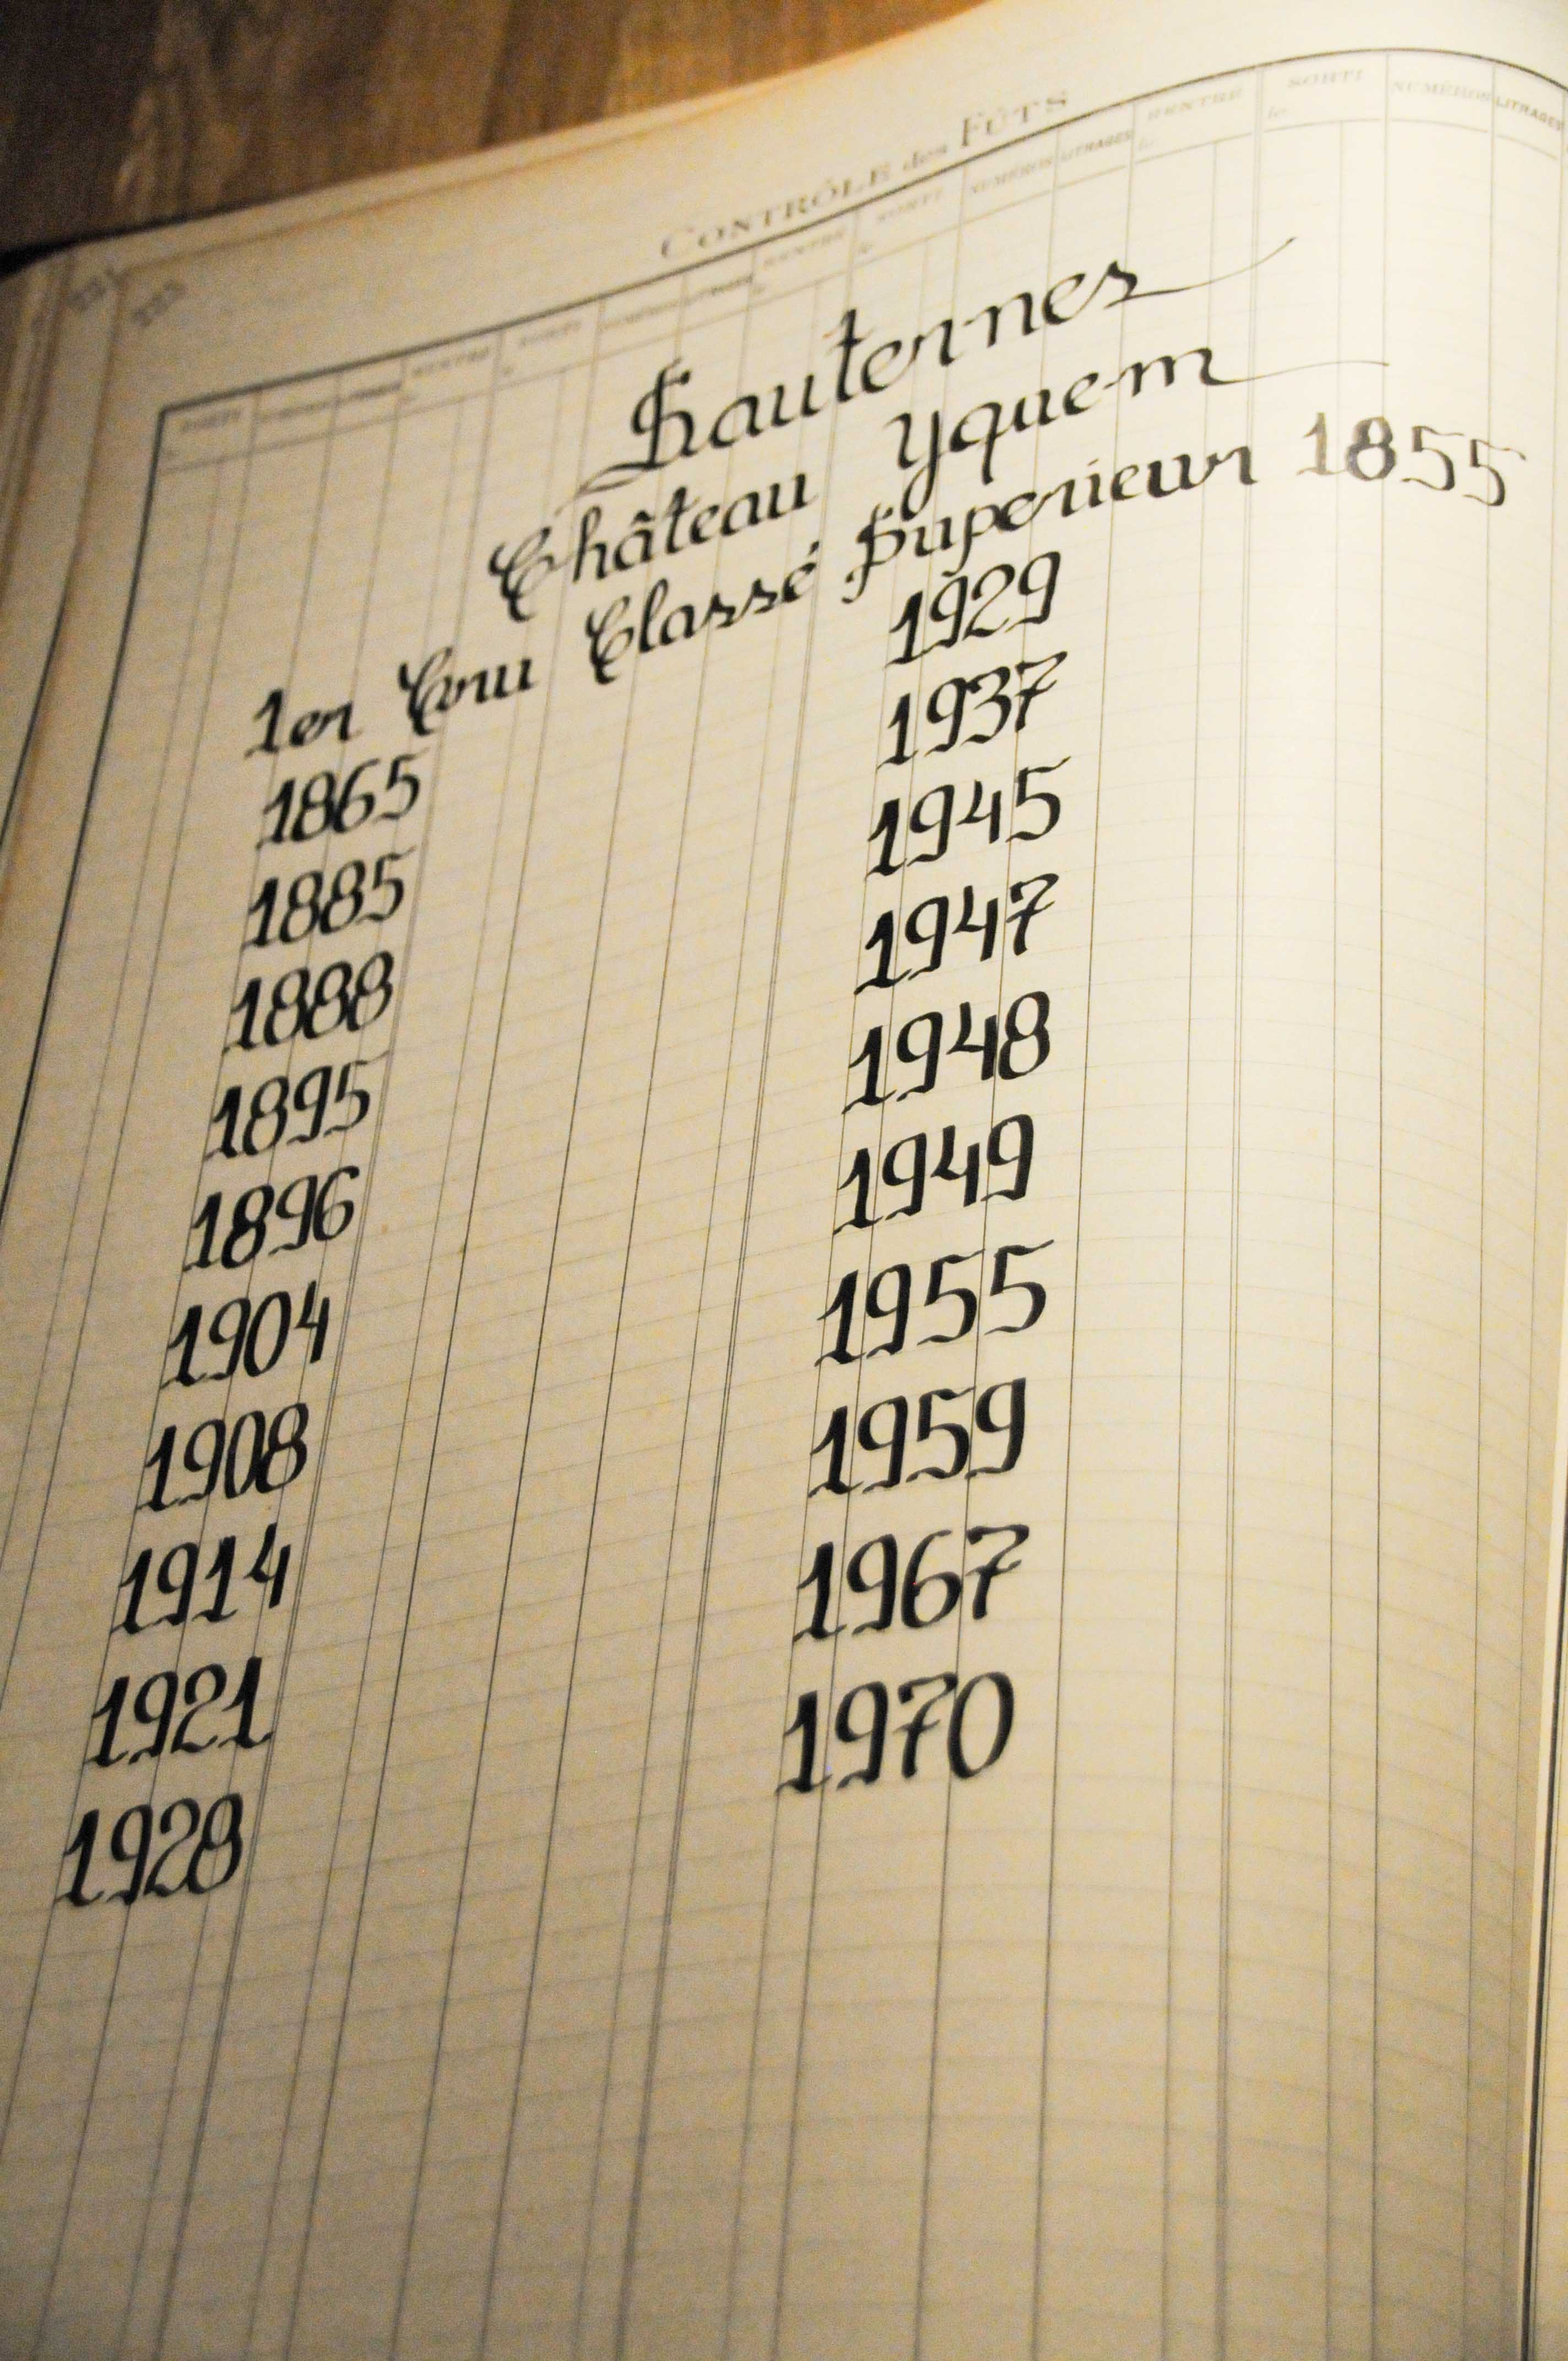 CONTRÔLE des FÛTS
RENTRÉ SORTI NUMÉROS LITRAGES RENTRÉ SORTI NUMÉROS LITRAGES
Sauternes
Château Yquem
1er Cru Classé Superieur 1855
1865
1885
1888
1895
1896
1904
1908
1914
1921
1928
1929
1937
1945
1947
1948
1949
1955
1959
1967
1970